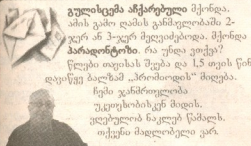 გულისცემა აჩქარებული მქონდა.
ამის გამო ღამის განმავლობაში 2-
ჯერ ან 3-ჯერ მეღვიძებოდა. მქონდა
პარადონტოზი. რა უნდა ვთქვა?
წლები თავისას შვება და 1,5 თვის წინ
დავიწყე ბალზამ „პრომიოდის" მიღება.
ჩემი ჯანმრთელობა
უკეთესობისკენ მიდის.
ვღებულობ ნაკლებ წამალს.
თქვენი მადლობელი ვარ.